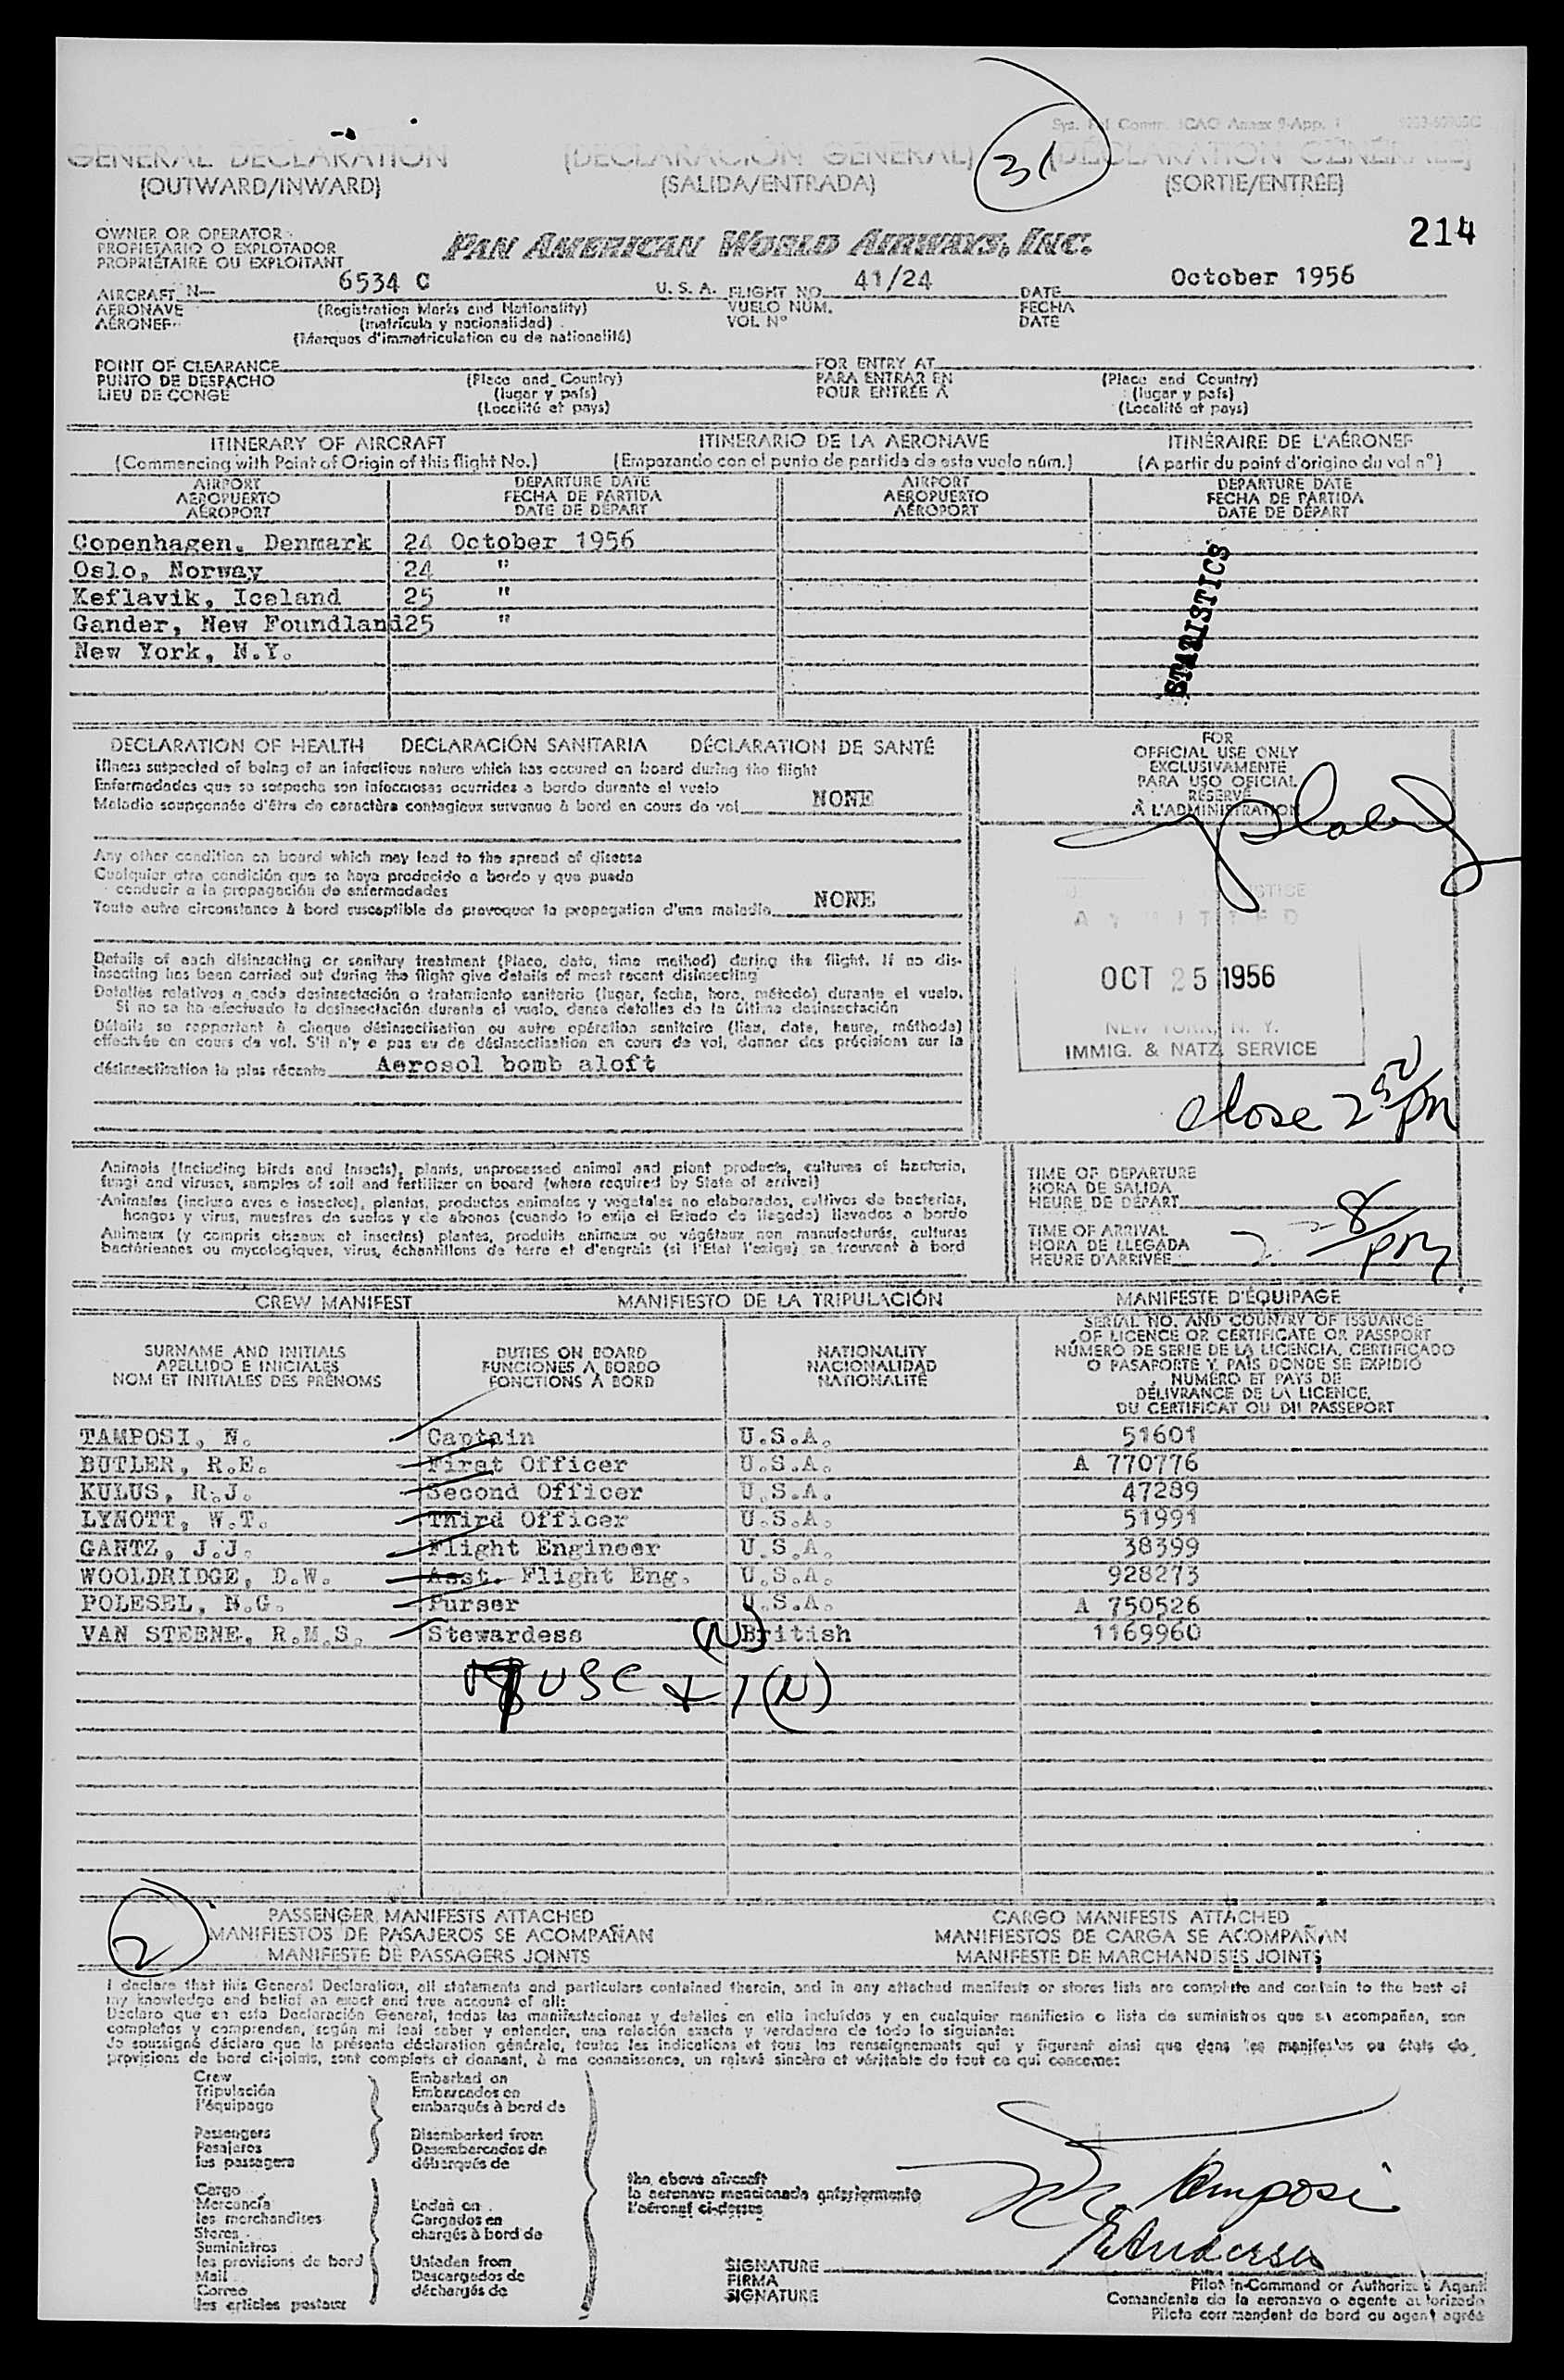 31
GENERAL DECLARATION (DECLARACIÓN GENERAL) (DÉCLARATION GÉNÉRALE)
(OUTWARD/INWARD) (SALIDA/ENTRADA) (SORTIE/ENTRÉE)
214
OWNER OR OPERATOR
PROPIETARIO O EXPLOTADOR
PROPRIÉTAIRE OU EXPLOITANT
PAN AMERICAN WORLD AIRWAYS, INC.
AIRCRAFT N— 6534 C U. S. A. FLIGHT NO. 41/24 DATE October 1956
AERONAVE (Registration Marks and Nationality) VUELO NÚM. FECHA
AÉRONEF (matrícula y nacionalidad) VOL Nº DATE
(Marques d'immatriculation ou de nationalité)
POINT OF CLEARANCE FOR ENTRY AT
PUNTO DE DESPACHO (Place and Country) PARA ENTRAR EN (Place and Country)
LIEU DE CONGÉ (lugar y país) POUR ENTRÉE À (lugar y país)
(Localité et pays) (Localité et pays)
ITINERARY OF AIRCRAFT ITINERARIO DE LA AERONAVE ITINÉRAIRE DE L'AÉRONEF
(Commencing with Point of Origin of this flight No.) (Empezando con el punto de partida de este vuelo núm.) (A partir du point d'origine du vol nº)
AIRPORT DEPARTURE DATE AIRPORT DEPARTURE DATE
AEROPUERTO FECHA DE PARTIDA AEROPUERTO FECHA DE PARTIDA
AÉROPORT DATE DE DÉPART AÉROPORT DATE DE DÉPART
Copenhagen, Denmark 24 October 1956
Oslo, Norway 24 "
Keflavik, Iceland 25 "
Gander, New Foundland 25 "
New York, N.Y.
STATISTICS
DECLARATION OF HEALTH DECLARACIÓN SANITARIA DÉCLARATION DE SANTÉ
Illness suspected of being of an infectious nature which has occured on board during the flight
Enfermedades que se sospecha son infecciosas ocurridas a bordo durante el vuelo
Maladie soupçonnée d'être de caractère contagieux survenue à bord en cours de vol NONE
Any other condition on board which may lead to the spread of disease
Cualquier otra condición que se haya producido a bordo y que pueda
conducir a la propagación de enfermedades
Toute autre circonstance à bord susceptible de provoquer la propagation d'une maladie NONE
Details of each disinsecting or sanitary treatment (Place, date, time method) during the flight. If no dis-
insecting has been carried out during the flight give details of most recent disinsecting
Detalles relativos a cada desinsectación o tratamiento sanitario (lugar, fecha, hora, método) durante el vuelo.
Si no se ha efectuado la desinsectación durante el vuelo, dense detalles de la última desinsectación
Détails se rapportant à chaque désinsectisation ou autre opération sanitaire (lieu, date, heure, méthode)
effectuée en cours de vol. S'il n'y a pas eu de désinsectisation en cours de vol, donner des précisions sur la
désinsectisation la plus récente Aerosol bomb aloft
FOR
OFFICIAL USE ONLY
EXCLUSIVAMENTE
PARA USO OFICIAL
RÉSERVÉ
À L'ADMINISTRATION
OCT 25 1956
NEW YORK, N. Y.
IMMIG. & NATZ. SERVICE
close 2 pm
Animals (including birds and insects), plants, unprocessed animal and plant products, cultures of bacteria,
fungi and viruses, samples of soil and fertilizer on board (where required by State of arrival)
Animales (incluso aves e insectos), plantas, productos animales y vegetales no elaborados, cultivos de bacterias,
hongos y virus, muestras de suelos y de abonos (cuando lo exija el Estado de llegada) llevados a bordo
Animaux (y compris oiseaux et insectes) plantes, produits animaux ou végétaux non manufacturés, cultures
bactériennes ou mycologiques, virus, échantillons de terre et d'engrais (si l'Etat l'exige) se trouvant à bord
TIME OF DEPARTURE
HORA DE SALIDA
HEURE DE DÉPART
TIME OF ARRIVAL
HORA DE LLEGADA
HEURE D'ARRIVÉE 2 28 pm
CREW MANIFEST MANIFIESTO DE LA TRIPULACIÓN MANIFESTE D'ÉQUIPAGE
SURNAME AND INITIALS
APELLIDO E INICIALES
NOM ET INITIALES DES PRÉNOMS
DUTIES ON BOARD
FUNCIONES A BORDO
FONCTIONS À BORD
NATIONALITY
NACIONALIDAD
NATIONALITÉ
SERIAL NO. AND COUNTRY OF ISSUANCE
OF LICENCE OR CERTIFICATE OR PASSPORT
NÚMERO DE SERIE DE LA LICENCIA, CERTIFICADO
O PASAPORTE Y PAÍS DONDE SE EXPIDIÓ
NUMÉRO ET PAYS DE
DÉLIVRANCE DE LA LICENCE,
DU CERTIFICAT OU DU PASSEPORT
TAMPOSI, N. Captain U.S.A. 51601
BUTLER, R.E. First Officer U.S.A. A 770776
KULUS, R.J. Second Officer U.S.A. 47289
LYNOTT, W.T. Third Officer U.S.A. 51991
GANTZ, J.J. Flight Engineer U.S.A. 38399
WOOLDRIDGE, D.W. Asst. Flight Eng. U.S.A. 928273
POLESEL, N.G. Purser U.S.A. A 750526
VAN STEENE, R.M.S. Stewardess (N) British 1169960
7 USC + 1 (N)
2
PASSENGER MANIFESTS ATTACHED CARGO MANIFESTS ATTACHED
MANIFIESTOS DE PASAJEROS SE ACOMPAÑAN MANIFIESTOS DE CARGA SE ACOMPAÑAN
MANIFESTE DE PASSAGERS JOINTS MANIFESTE DE MARCHANDISES JOINTS
I declare that this General Declaration, all statements and particulars contained therein, and in any attached manifests or stores lists are complete and contain to the best of
my knowledge and belief an exact and true account of all:
Declaro que en esta Declaración General, todas las manifestaciones y detalles en ella incluídos y en cualquier manifiesto o lista de suministros que se acompañan, son
completos y comprenden, según mi leal saber y entender, una relación exacta y verdadera de todo lo siguiente:
Je soussigné déclare que la présente déclaration générale, toutes les indications et tous les renseignements qui y figurent ainsi que dans les manifestes ou états de
provisions de bord ci-joints, sont complets et donnent, à ma connaissance, un relevé sincère et véritable de tout ce qui concerne:
Crew
Tripulación
l'équipage
Passengers
Pasajeros
les passagers
Cargo
Mercancía
les marchandises
Stores
Suministros
les provisions de bord
Mail
Correo
les articles postaux
Embarked on
Embarcados en
embarqués à bord de
Disembarked from
Desembarcados de
débarqués de
Laden on
Cargados en
chargés à bord de
Unladen from
Descargados de
déchargés de
the above aircraft
la aeronave mencionada anteriormente
l'aéronef ci-dessus
Tamposi
SIGNATURE
FIRMA
SIGNATURE
Pilot in-Command or Authorized Agent
Comandante de la aeronave o agente autorizado
Pilote commandant de bord ou agent agréé